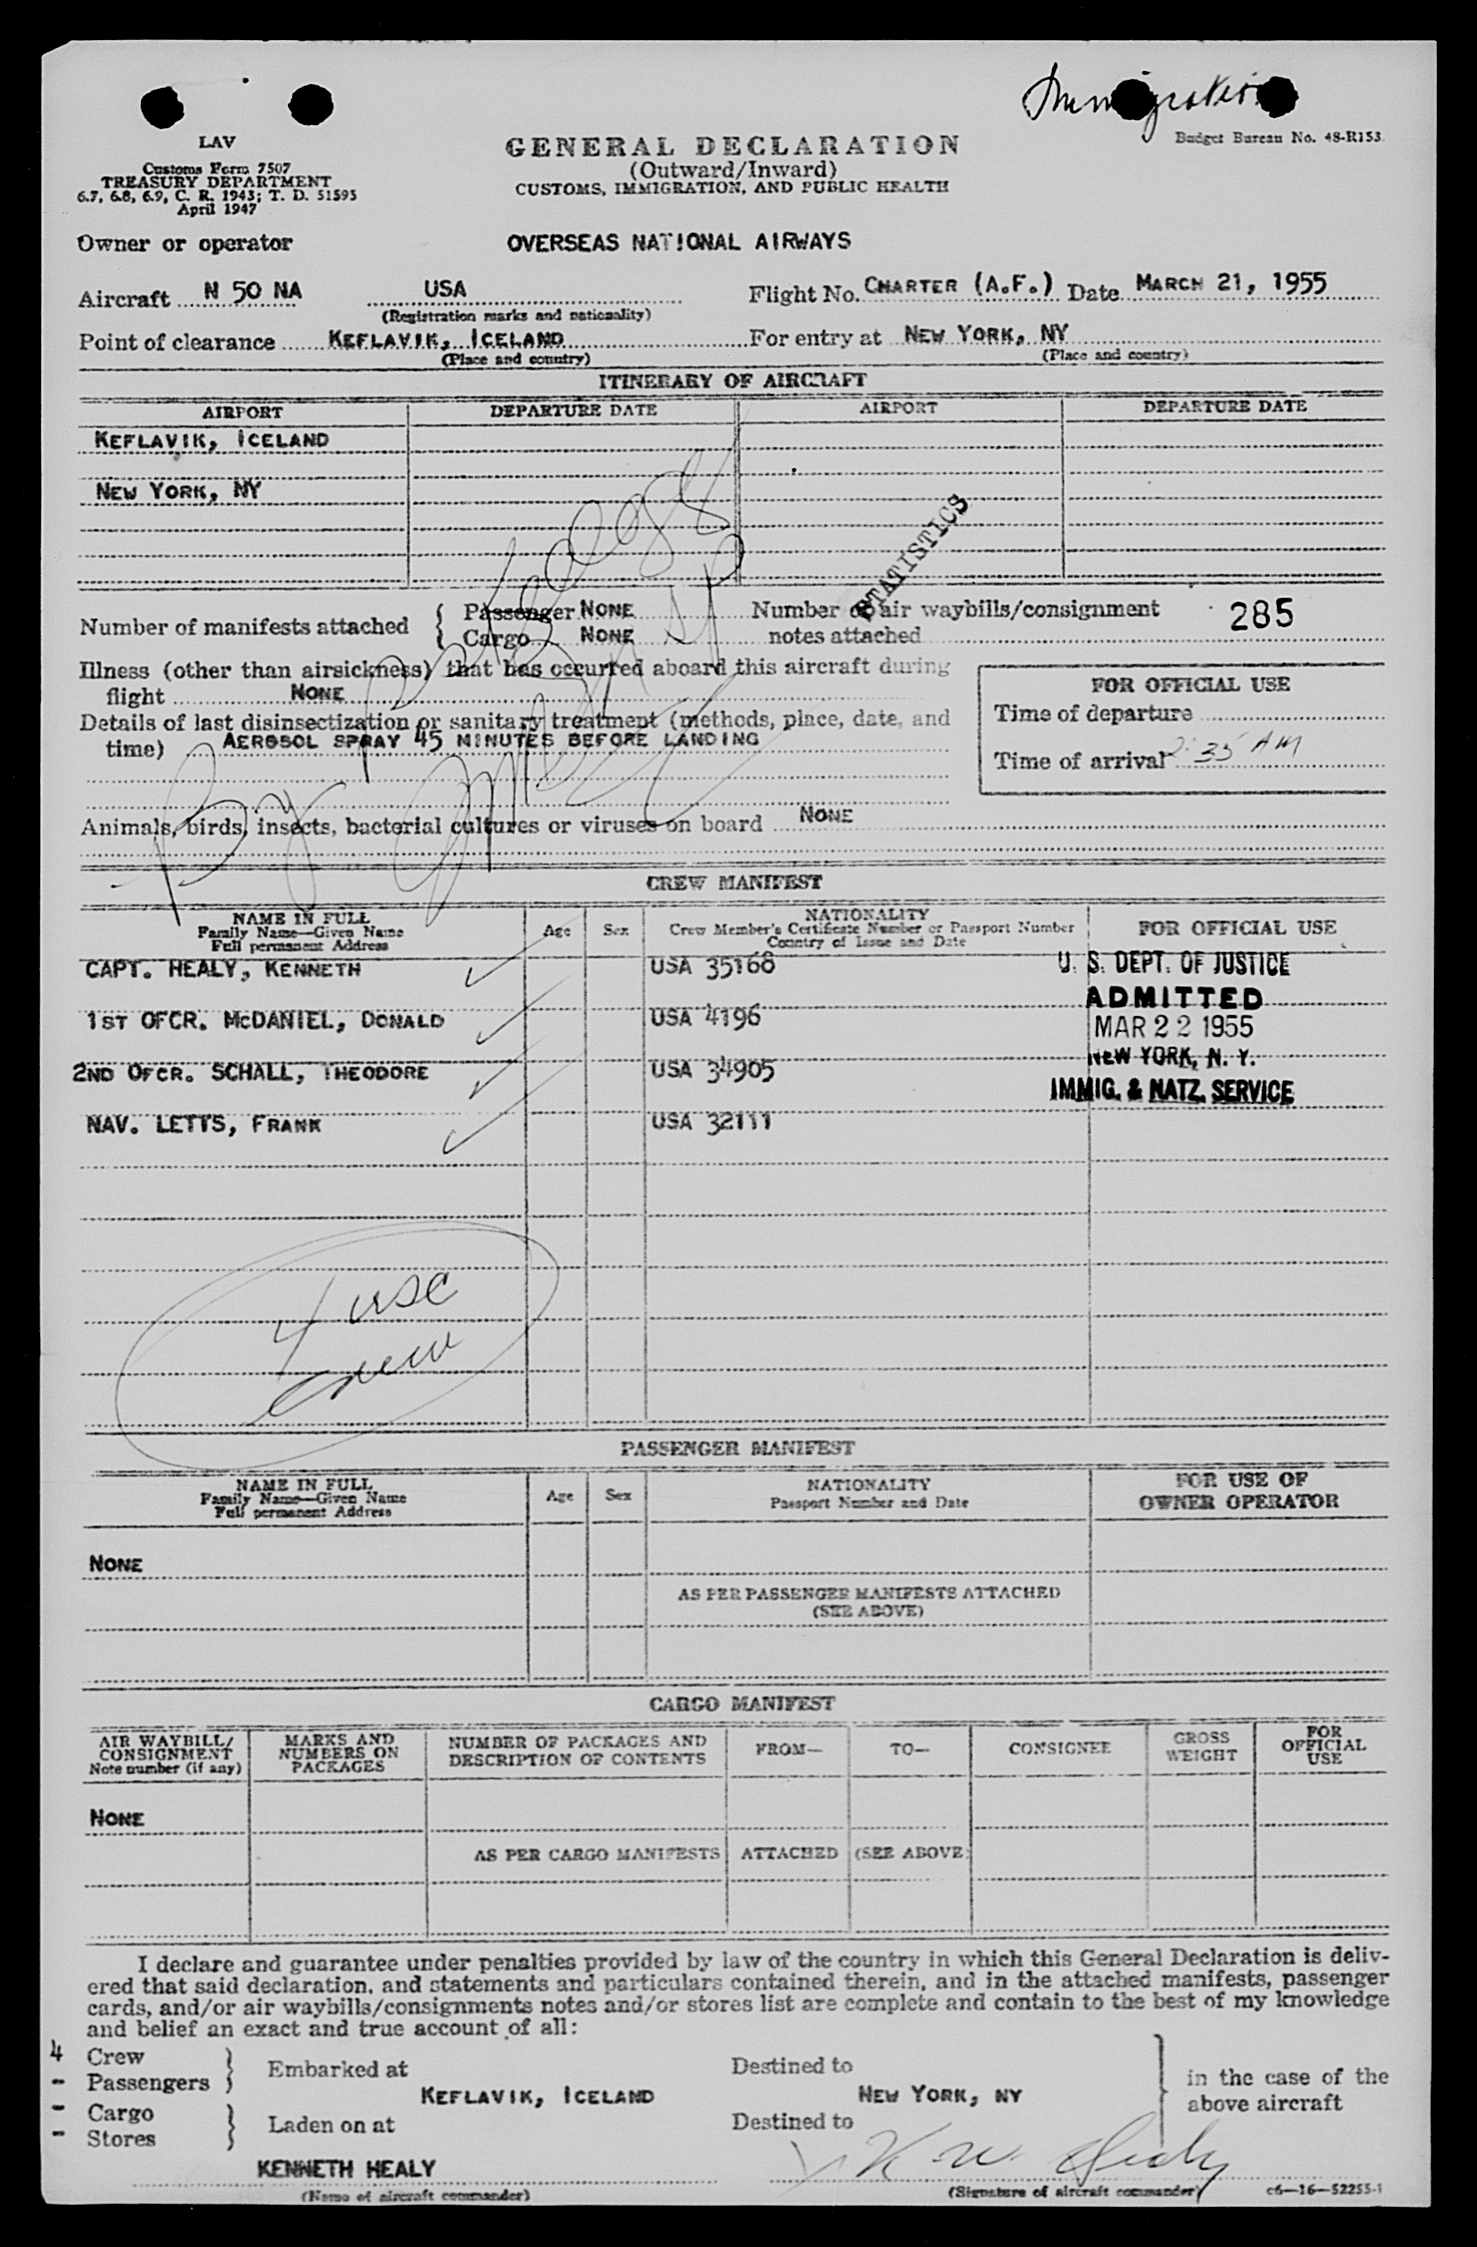 Immigration
LAV
Customs Form 7507
TREASURY DEPARTMENT
6.7, 6.8, 6.9, C. R. 1943; T. D. 51595
April 1947
GENERAL DECLARATION
(Outward/Inward)
CUSTOMS, IMMIGRATION, AND PUBLIC HEALTH
Budget Bureau No. 48-R153.
Owner or operator OVERSEAS NATIONAL AIRWAYS
Aircraft N 50 NA USA Flight No. CHARTER (A.F.) Date MARCH 21, 1955
(Registration marks and nationality)
Point of clearance KEFLAVIK, ICELAND For entry at NEW YORK, NY
(Place and country) (Place and country)
ITINERARY OF AIRCRAFT
AIRPORT DEPARTURE DATE AIRPORT DEPARTURE DATE
KEFLAVIK, ICELAND
NEW YORK, NY
STATISTICS
Number of manifests attached { Passenger NONE Number of air waybills/consignment 285
Cargo NONE notes attached
Illness (other than airsickness) that has occurred aboard this aircraft during
flight NONE
Details of last disinsectization or sanitary treatment (methods, place, date, and
time) AEROSOL SPRAY 45 MINUTES BEFORE LANDING
FOR OFFICIAL USE
Time of departure
Time of arrival 2:35 AM
Animals, birds, insects, bacterial cultures or viruses on board NONE
By
CREW MANIFEST
NAME IN FULL
Family Name—Given Name
Full permanent Address
Age Sex
NATIONALITY
Crew Member's Certificate Number or Passport Number
Country of Issue and Date
FOR OFFICIAL USE
CAPT. HEALY, KENNETH USA 35168
1ST OFCR. McDANIEL, DONALD USA 4196
2ND OFCR. SCHALL, THEODORE USA 34905
NAV. LETTS, FRANK USA 32111
U. S. DEPT. OF JUSTICE
ADMITTED
MAR 22 1955
NEW YORK, N. Y.
IMMIG. & NATZ. SERVICE
4 usc
crew
PASSENGER MANIFEST
NAME IN FULL
Family Name—Given Name
Full permanent Address
Age Sex
NATIONALITY
Passport Number and Date
FOR USE OF
OWNER OPERATOR
NONE
AS PER PASSENGER MANIFESTS ATTACHED
(SEE ABOVE)
CARGO MANIFEST
AIR WAYBILL/
CONSIGNMENT
Note number (if any)
MARKS AND
NUMBERS ON
PACKAGES
NUMBER OF PACKAGES AND
DESCRIPTION OF CONTENTS
FROM— TO— CONSIGNEE
GROSS
WEIGHT
FOR
OFFICIAL
USE
NONE
AS PER CARGO MANIFESTS ATTACHED (SEE ABOVE)
I declare and guarantee under penalties provided by law of the country in which this General Declaration is deliv-
ered that said declaration, and statements and particulars contained therein, and in the attached manifests, passenger
cards, and/or air waybills/consignments notes and/or stores list are complete and contain to the best of my knowledge
and belief an exact and true account of all:
4 Crew
- Passengers } Embarked at Destined to
KEFLAVIK, ICELAND NEW YORK, NY
- Cargo
- Stores } Laden on at Destined to
in the case of the
above aircraft
KENNETH HEALY K W Healy
(Name of aircraft commander) (Signature of aircraft commander) c6—16—52255-1